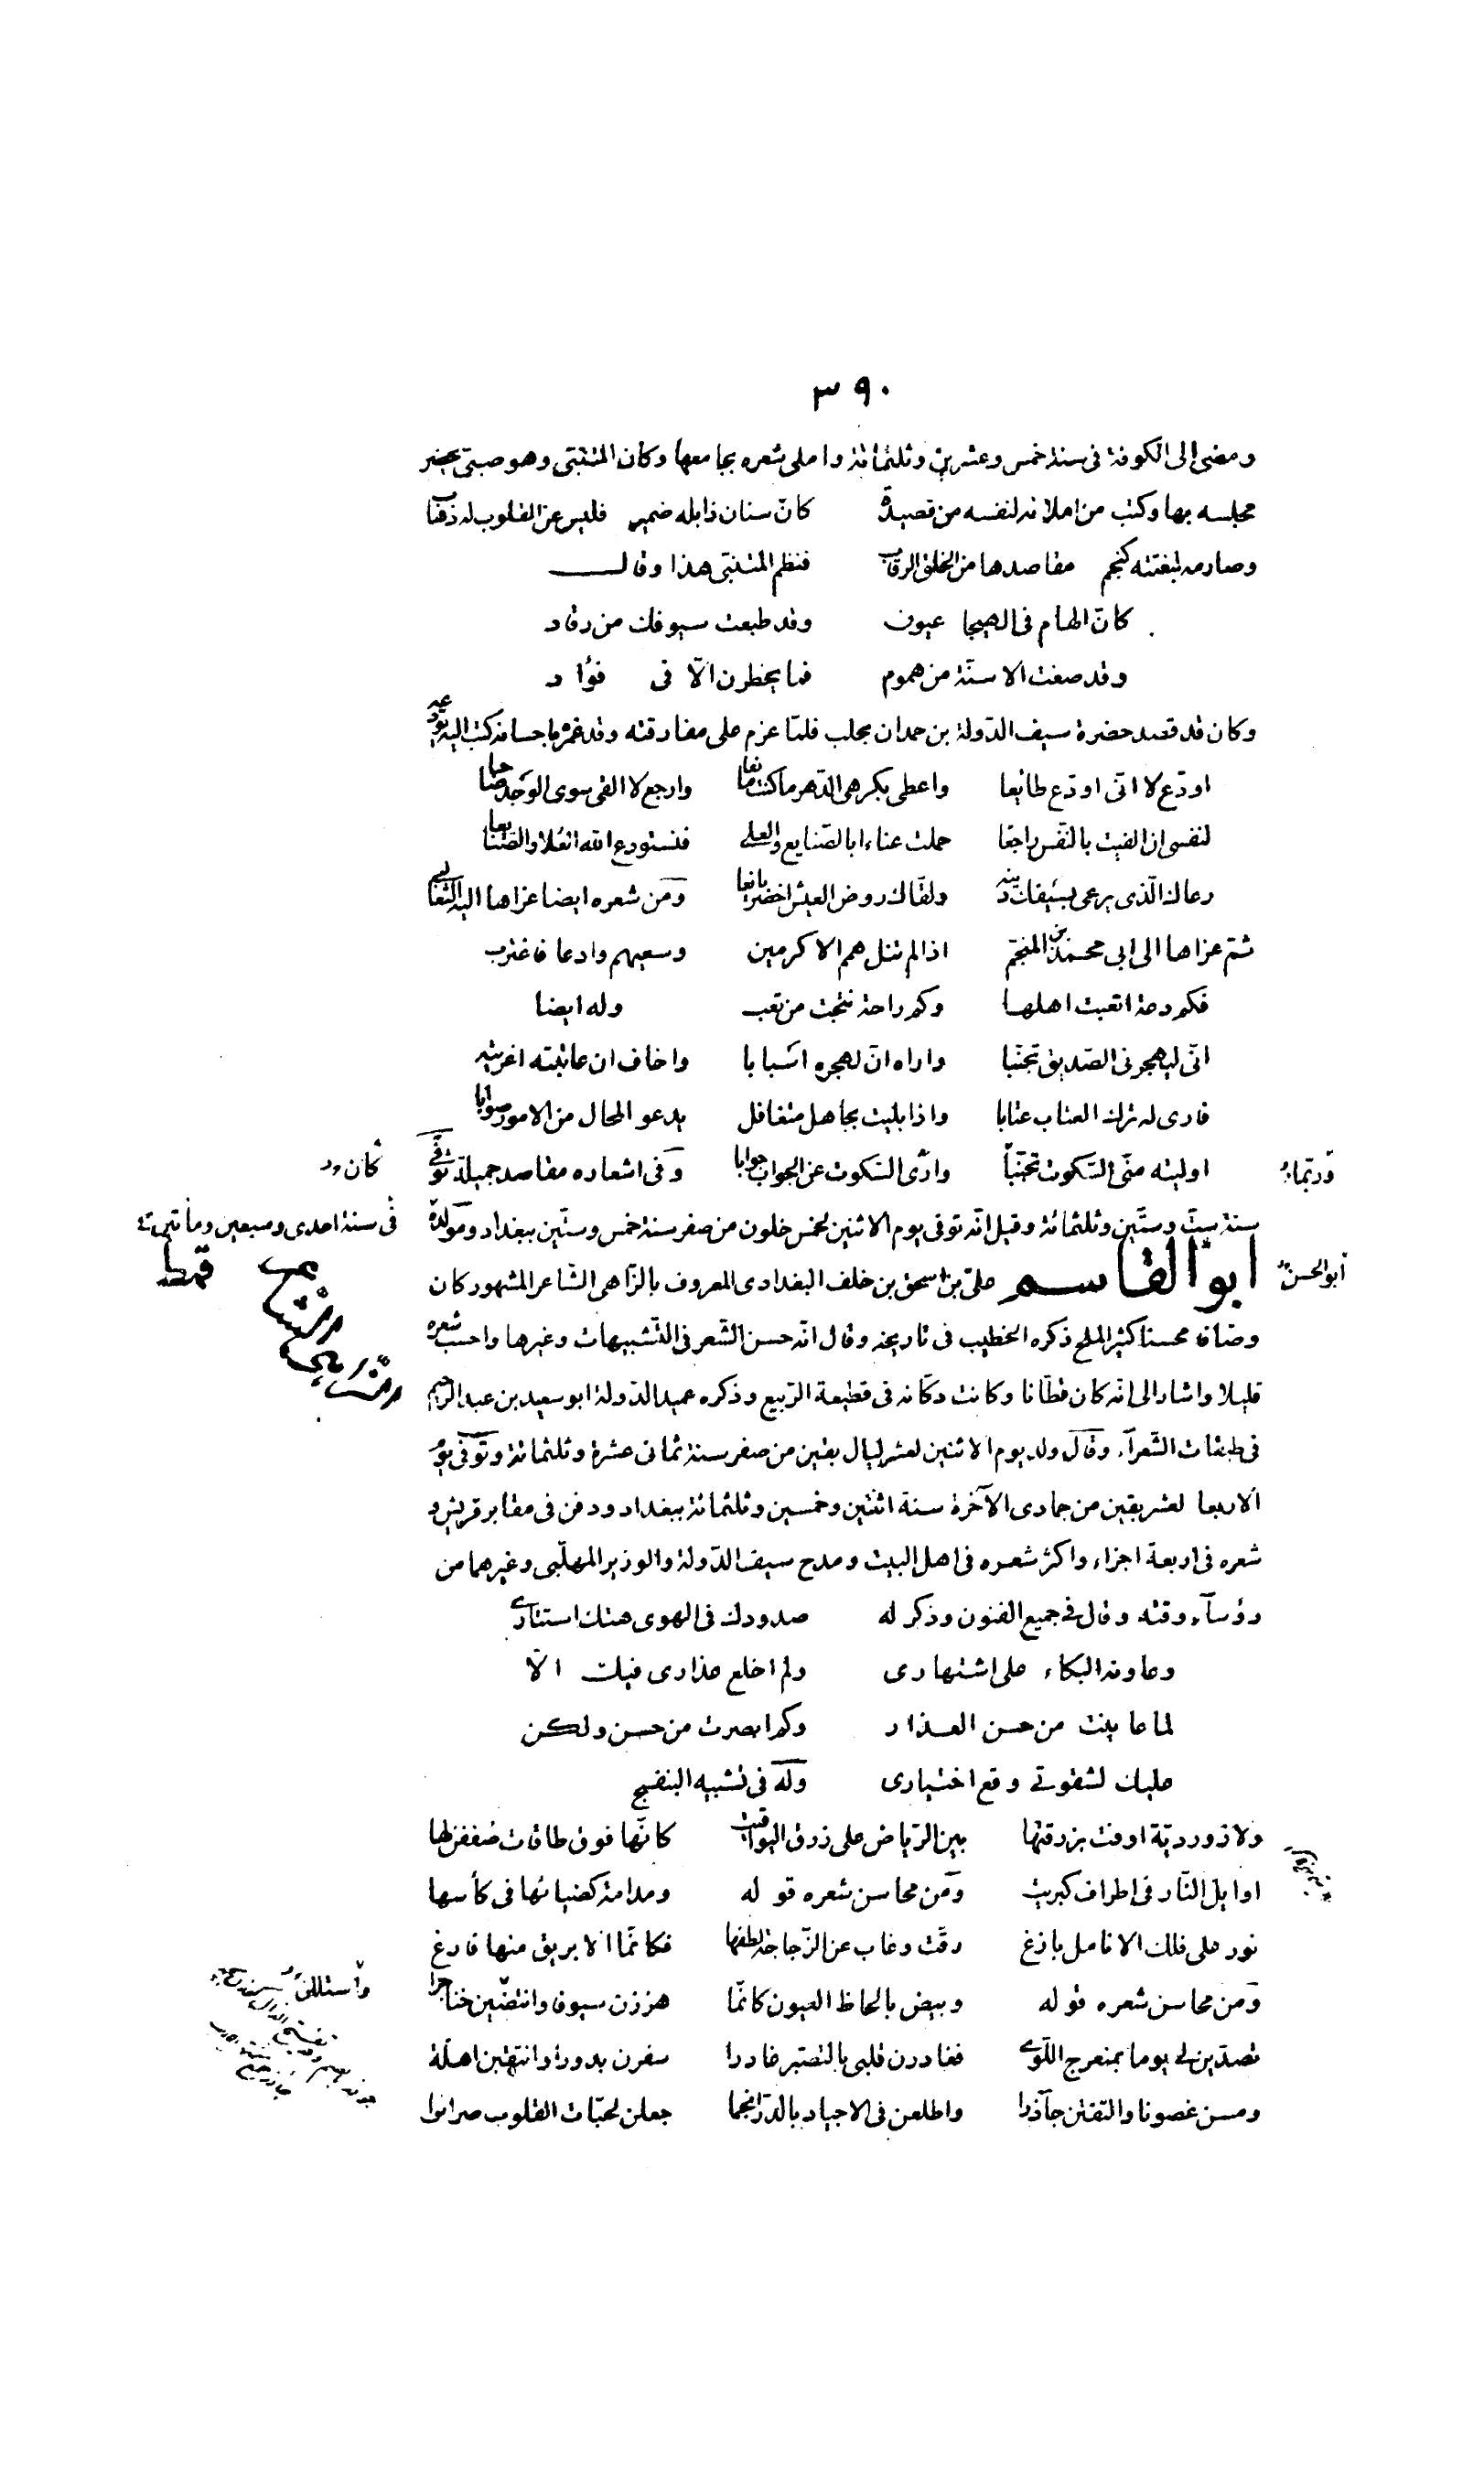 ٣٩٠
ومضى الى الكوفة فى سنة خمس وعشرين وثلثمائة واملى شعره بجامعها وكان المتنبى وهو صبى يحضر
مجلسه بها وكتب من املائه لنفسه من قصيدة كانّ سنان ذابله ضمير فليس عن القلوب له ذهاب
وصارمه لبغتته كنجم مقاصدها من الخلق الرقاب فنظم المتنبى هذا وقال
كانّ الهام فى الهيجا عيون وقد طبعت سيوفك من رقاد
وقد صغت الاسنّة من هموم فما يخطرن الّا فى فؤاد
وكان قد قصد حضرة سيف الدّولة بن حمدان بحلب فلمّا عزم على مفارقته وقد غمره باحسانه كتب اليه يودّعه
اودّع لا انّى اودّع طائعا واعطى بكرهى الدّهر ما كنت مانعا وارجع لا القى سوى الوجد صاحبا
لنفسى ان الفيت بالنّفس راجعا حملت عناءا بالصّنايع والعلى فنستودع الله العلا والصّنايعا
رعاك الّذى يرعى بسيفك دينه ولقّاك روض العيش اخضر يانعا ومن شعره ايضا عزاها اليه الثعالبى
ثمّ عزاها الى ابى محمد بن المنجّم اذا لم تنل همم الاكرمين وسعيهم وادعا فاغترب
فكم دعة اتعبت اهلها وكم راحة نتجت من تعب وله ايضا
انّى ليهجرنى الصّديق تجنّبا واراه انّ لهجره اسبابا واخاف ان عاتبته اغريته
فارى له ترك العتاب عتابا واذا بليت بجاهل متغافل يدعو المحال من الامور صوابا
اوليته منّى السّكوت تجنّبا وارى السّكوت عن الجواب جوابا وفى اشعاره مقاصد جميلة توفّى
وربّما
كان
سنة ستّ وستّين وثلثمائة وقيل انّه توفى يوم الاثنين لخمس خلون من صفر سنة خمس وستّين ببغداد ومولده
فى سنة احدى وسبعين ومأتين
ابو القاسم علىّ بن اسحق بن خلف البغدادى المعروف بالزّاهى الشّاعر المشهور كان
ابو الحسن
الزّاهى الشاعر
وصّافا محسنا كثير الملح ذكره الخطيب فى تاريخه وقال انّه حسن الشّعر فى التّشبيهات وغيرها واحسب شعره
قليلا واشار الى انّه كان قطّانا وكانت دكّانه فى قطيعة الرّبيع وذكره عميد الدّولة ابو سعيد بن عبد الرحيم
فى طبقات الشّعرآء وقال ولد يوم الاثنين لعشر ليال بقين من صفر سنة ثمانى عشرة وثلثمائة وتوفى يوم
الاربعا لعشر بقين من جمادى الآخرة سنة اثنتين وخمسين وثلثمائة ببغداد ودفن فى مقابر قريش و
شعره فى اربعة اجزاء واكثر شعره فى اهل البيت ومدح سيف الدّولة والوزير المهلّبى وغيرهما من
رؤسآء وقته وقال فى جميع الفنون وذكر له صدودك فى الهوى هتك استتارى
وعاونه البكاء على اشتهارى ولم اخلع عذارى فيك الّا
لما عاينت من حسن العذار وكم ابصرت من حسن ولكن
عليك لشقوتى وقع اختيارى وله فى تشبيه البنفسج
ولازورديّة اوفت بزرقتها بين الرّياض على زرق اليواقيت كانّها فوق طاقات ضعفن لها
اوايل النّار فى اطراف كبريت ومن محاسن شعره قوله ومدامة كضيائها فى كأسها
نور على فلك الانامل بازغ رقّت وغاب عن الزّجاجة لطفها فكانّما الابريق منها فارغ
ومن محاسن شعره قوله وبيض بالحاظ العيون كانّما هززن سيوفا وانتضين خناجرا
واستللن
تصدّين لى يوما بمنعرج اللّوى فغادرن قلبى بالتصبّر غادرا سفرن بدورا وانتقبن اهلّة
ومسن غصونا والتفتن جآذرا واطلعن فى الاجياد بالدّرّ انجما جعلن لحبّات القلوب ضرائرا